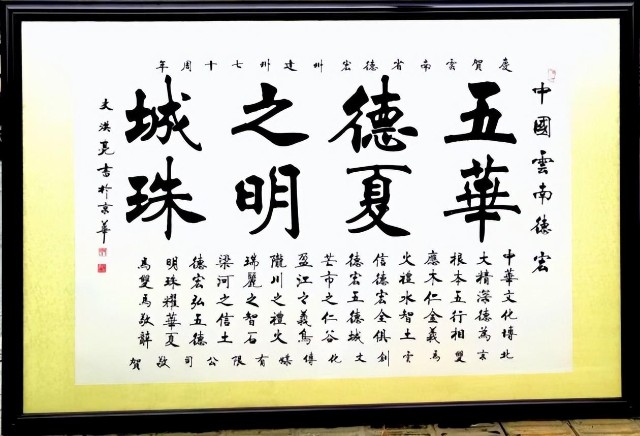 慶賀雲南省德宏州建州七十周年
中國雲南德宏
五德之城
華夏明珠
中華文化博
大精深德為
根本五行相
應木仁金義
火禮水智土
信德宏全俱
德宏五德城
芒市之仁谷
盈江之義鳥
隴川之禮火
瑞麗之智石
梁河之信土
德宏弘五德
明珠耀華夏
馬雙馬敬辭
北京雙馬雲創文化傳媒有限公司敬賀
文洪亮書於京華